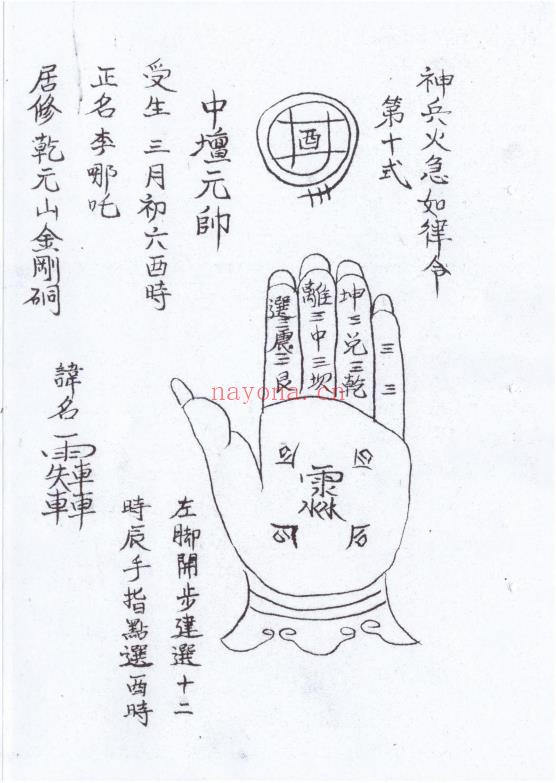 神兵火急如律令
第十式
酉
中壇元帥
受生 三月初六酉時
正名李哪吒
居修 乾元山金剛硐
坤 三 兌 三 乾
離 三 中 三 坎
選 三 震 三 艮
三 三
諱名
左脚開步建選十二
時辰手指點選酉時
nayona.cn